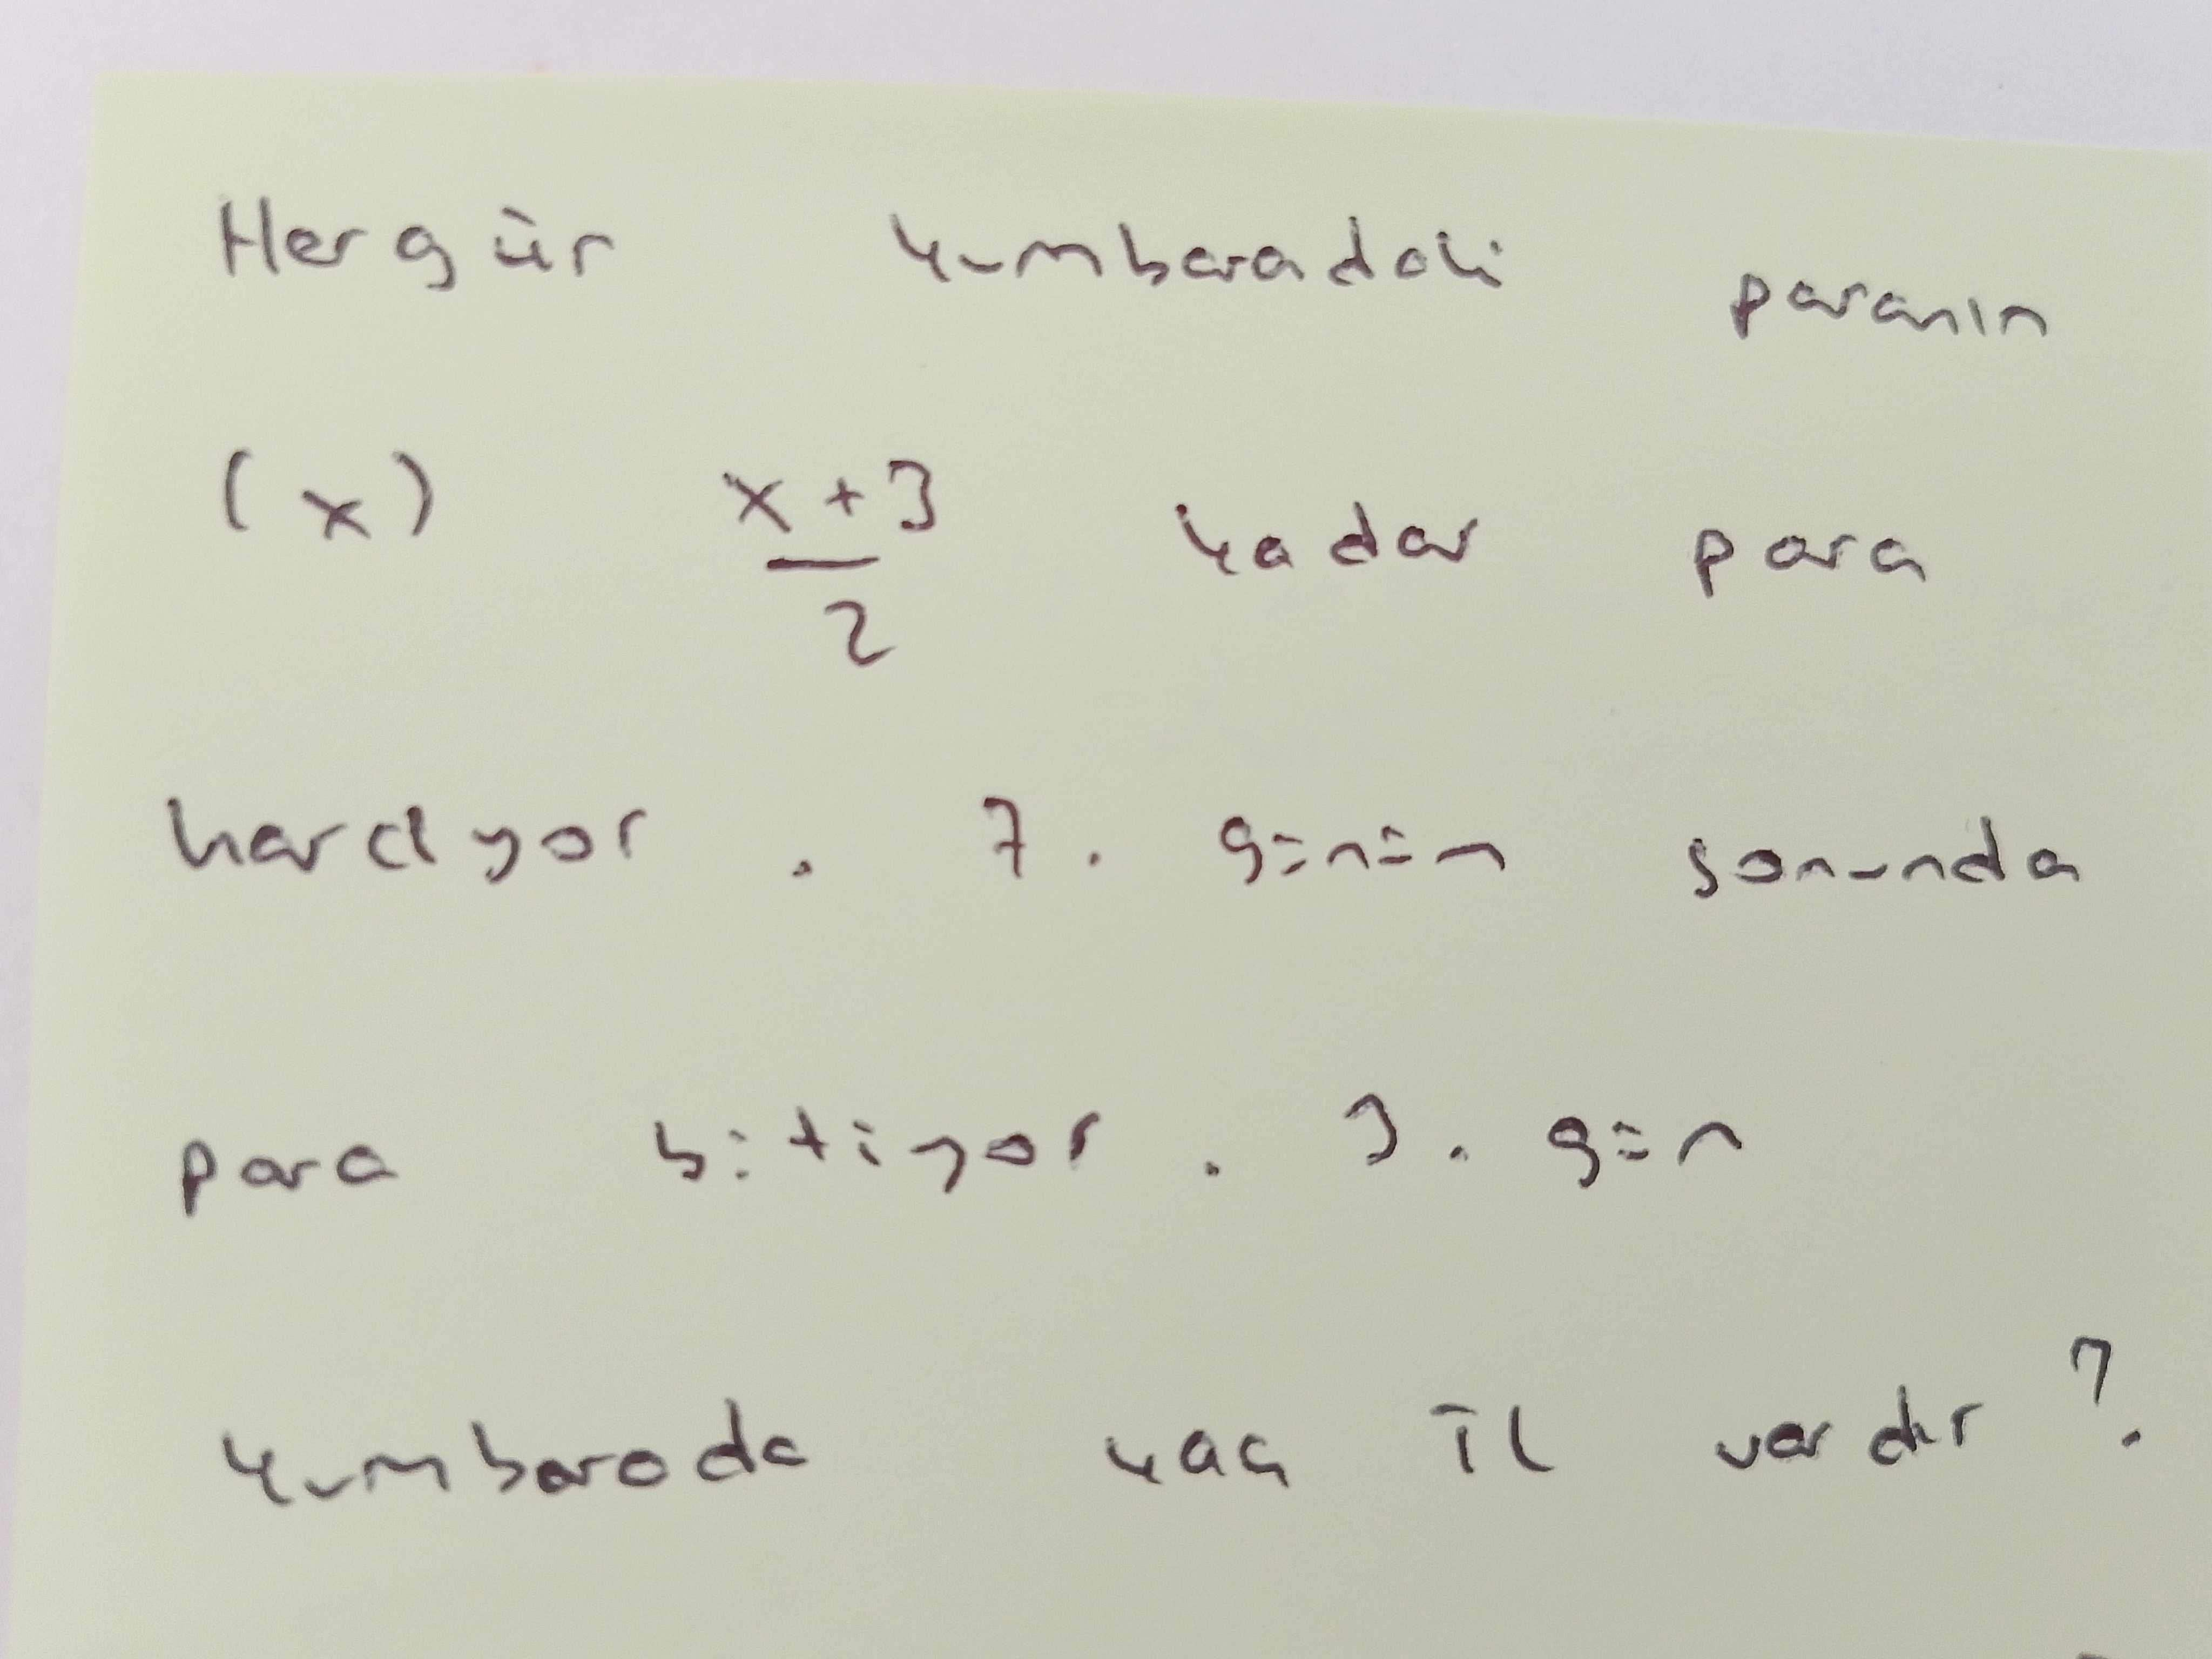 Hergün kumbaradaki paranın
(x) x+3/2 kadar para
harcıyor. 7. günün sonunda
para bitiyor. 3. gün
kumbarada kaç TL vardır?